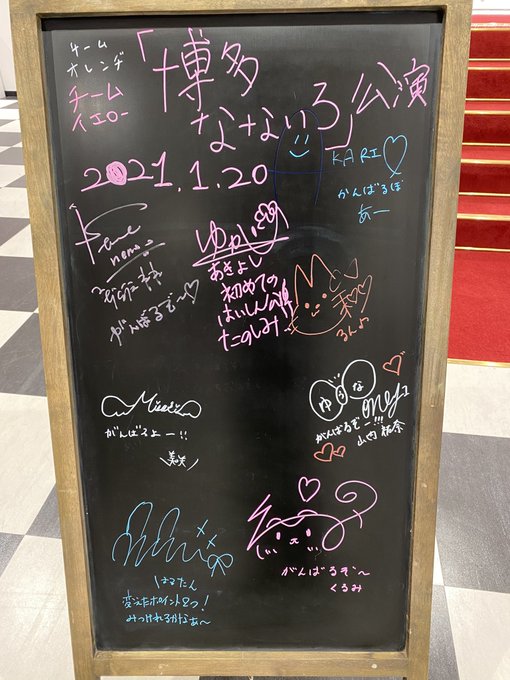 チーム
オレンジ
チーム
イエロー
「博多
なないろ」公演
2021.1.20
KARI
がんばるぽ
あー
がんばるぞ〜
ゆかい
あきよし
初めての
はいしん公演
たのしみ
るんよ
がんばるよー!!
美咲
ゆうな
がんばるぞー!!!
山内祐奈
はるたん
変えたポイント2つ!
みつけれるかなぁ〜
がんばるぞ〜
くるみ